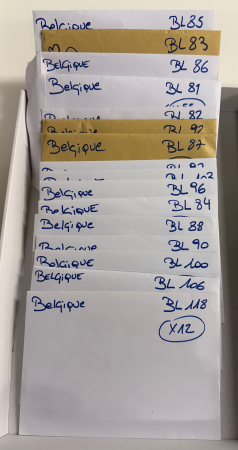 Belgique BL 85
BL 83
BELGiQUE BL 86
Belgique BL 81
BL 82
BL 92
Belgique BL 87
BL 96
BELGiQUE BL 84
BELGiQUE BL 88
BL 90
BELGiQUE BL 100
BELGiQUE BL 106
Belgique BL 118
x12